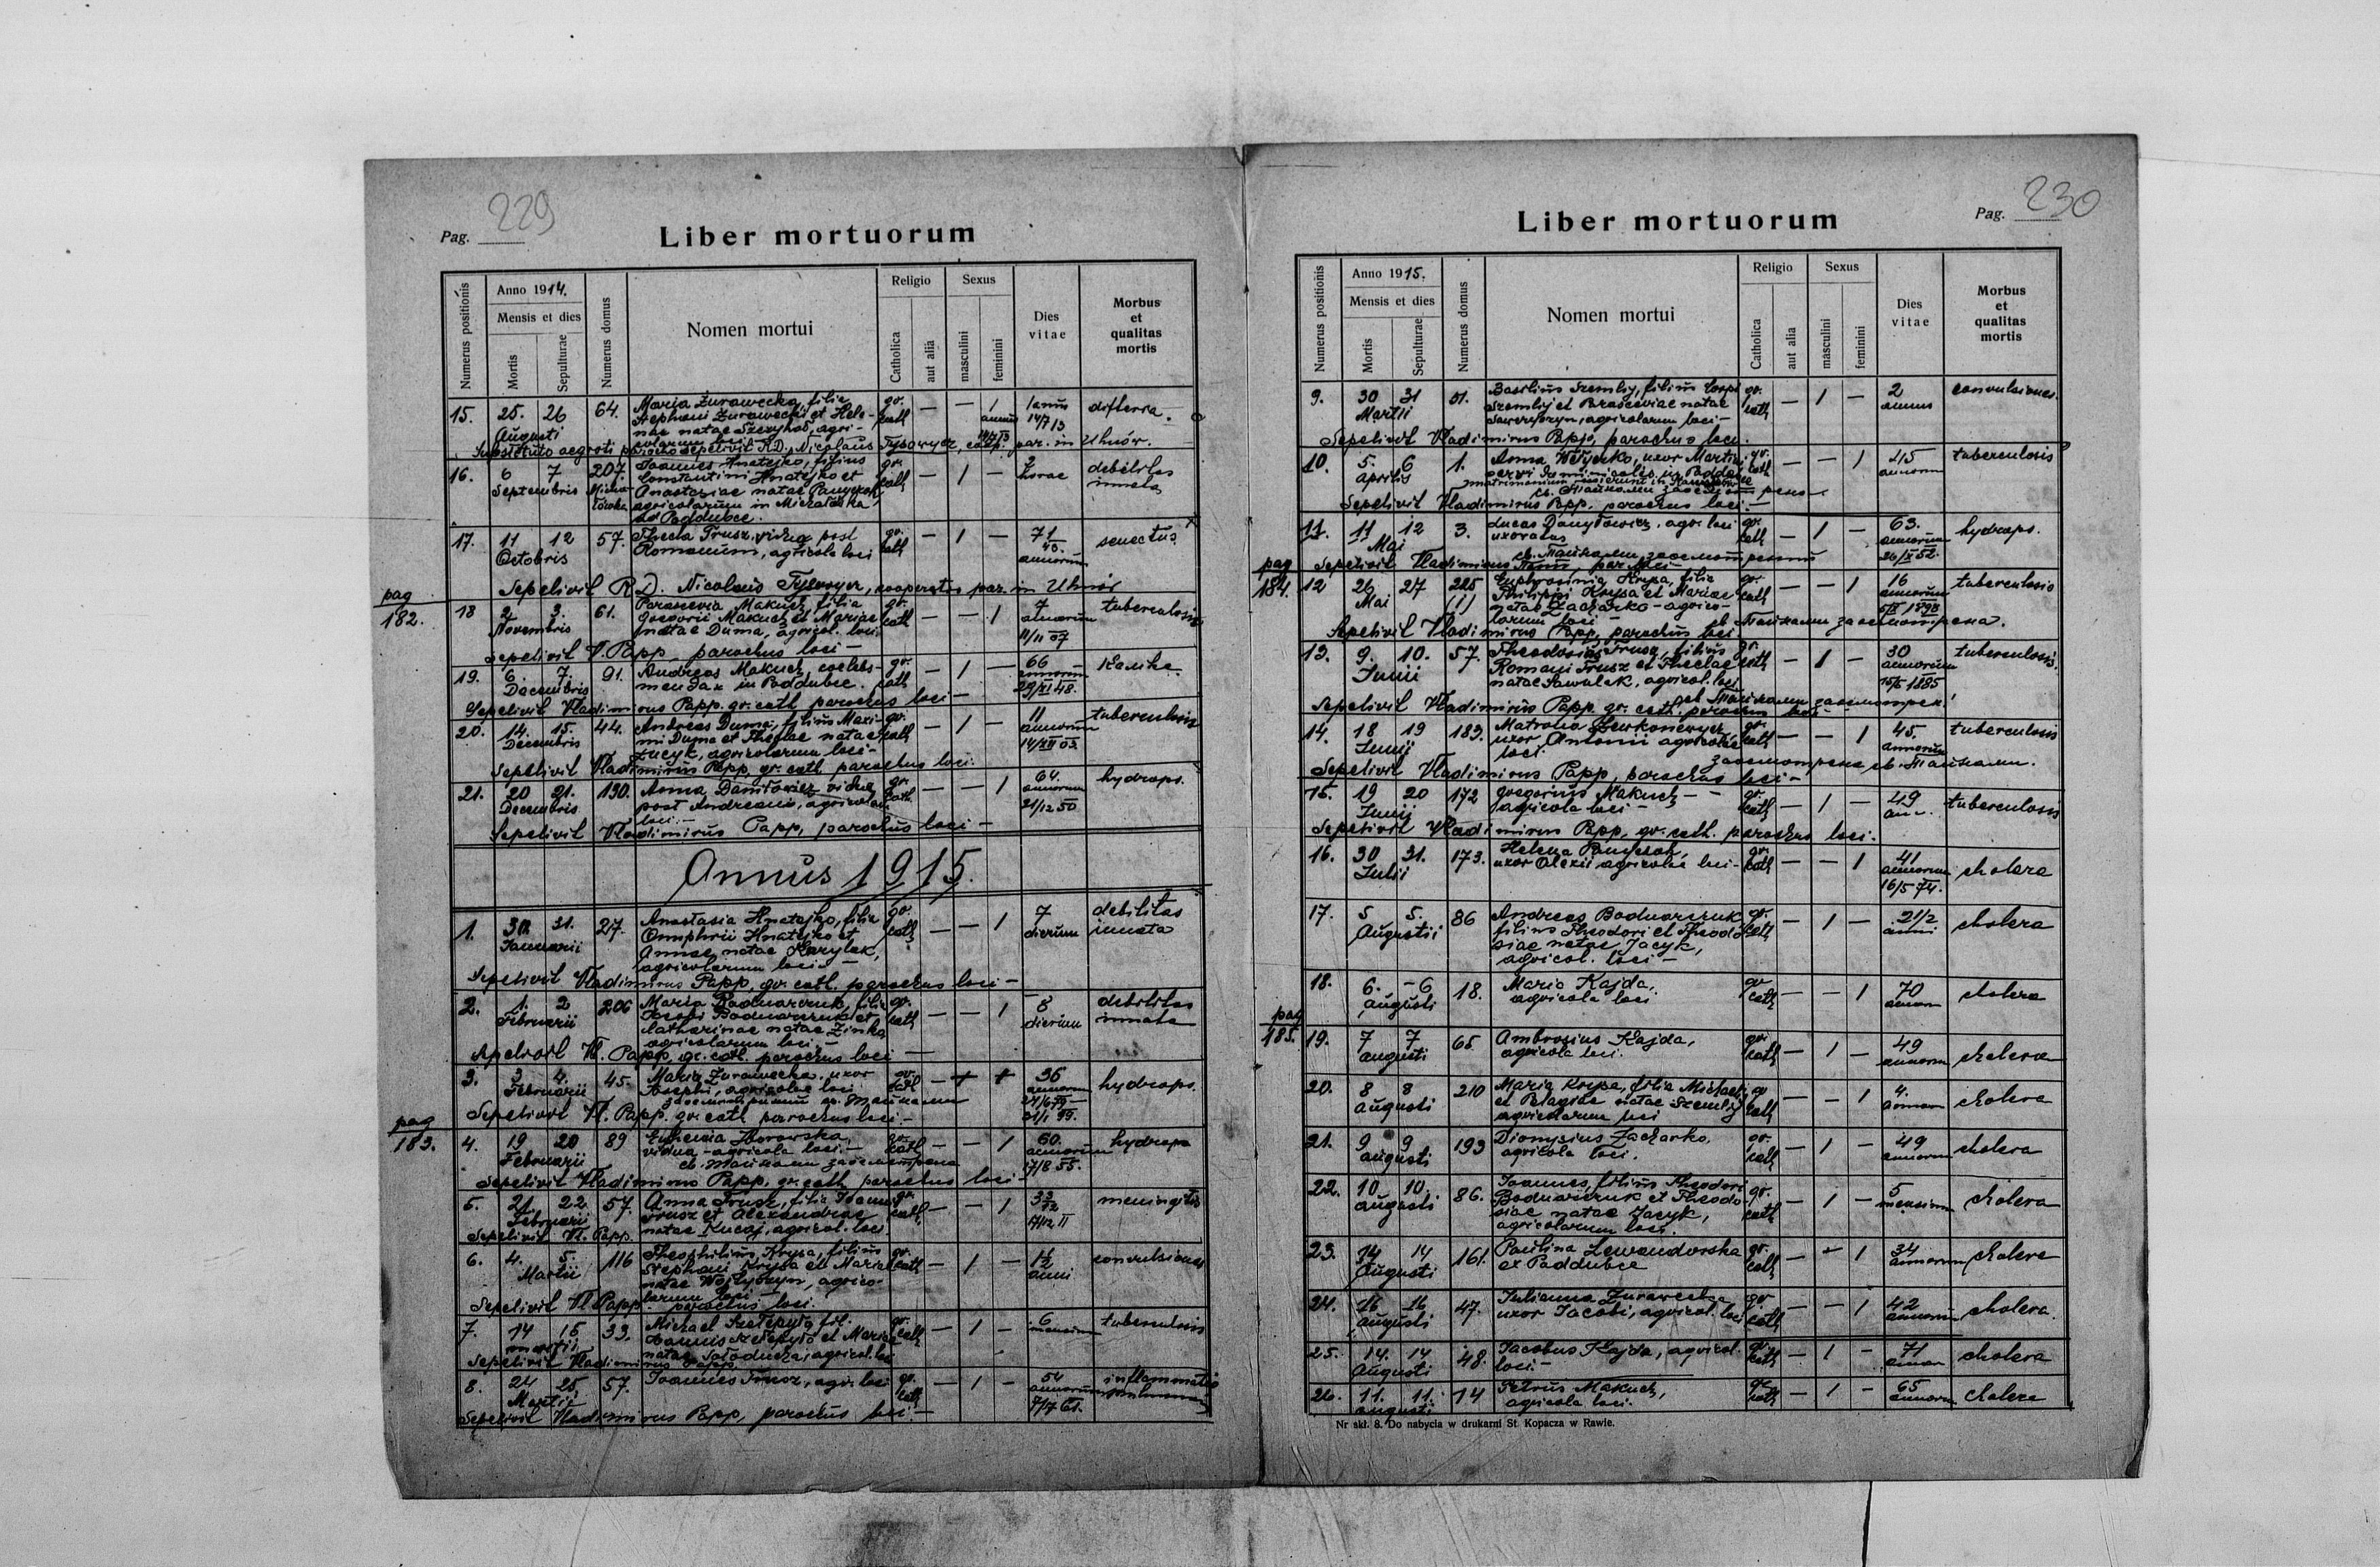 229
Pag.
Liber mortuorum
Numerus positionis
Anno 1914.
Mensis et dies
Mortis
Sepulturae
Numerus domus
Nomen mortui
Religio
Catholica
aut alia
Sexus
masculini
feminini
Dies vitae
Morbus et qualitas mortis
15. 25. 26 64. Maria Żurawecka, filia gr. — — 1 1 annus difteria.
Augusti Stephani Żurawecki et Hele- cath 14/7 13
nae natae Szczyhoł, agri-
colarum loci
Substituto aegroti parocho sepelivit R.D. Nicolaus Tysowycz, coop. par. in Uhnów.
16. 6 7 207. Joannes Hnatejko, filius gr. — 1 — 2 debilitas
Septembris Constantini Hnatejko et cath horae innata
Anastasiae natae Panyczok
agricolarum in Michałówka
ad Poddubce.
17. 11 12 57. Thecla Trusz, vidua post gr. — 1 — 71 senectus
Octobris Romanum, agricola loci cath annorum
Sepelivit R.D. Nicolaus Tysowycz, cooperator par. in Uhnów
pag 182.
18 2. 3. 61. Parascevia Makuch, filia gr. — — 1 7 tuberculosis
Novembris Gregorii Makuch et Mariae cath annorum
natae Duma, agricol. loci. 11/11 07
Sepelivit V. Papp parochus loci —
19. 6. 7. 91. Andreas Makuch, coelebs — gr. — 1 — 66
Decembris mendax in Poddubce. cath annorum
29/XI 48.
Sepelivit Vladimirus Papp. gr. cath parochus loci —
20. 14. 15. 44. Andreas Duma, filius Maxi- gr. — 1 — 11 tuberculosis
Decembris mi Duma et Theclae natae cath annorum
Żucyk, agricolarum loci — 14/XII 03
Sepelivit Vladimirus Papp, gr. cath parochus loci.
21. 20 21. 190. Anna Daniłowicz vidua gr. — — 1 64. hydrops.
Decembris post Andream, agricola cath annorum
loci. — 21/12 50
Sepelivit Vladimirus Papp, parochus loci —
Annus 1915.
1. 30. 31. 27. Anastasia Hnatejko, filia gr. — — 1 7 debilitas
Januarii Onuphrii Hnatejko et cath dierum innata
Annae natae Karylak,
agricolarum loci. —
Sepelivit Vladimirus Papp, gr. cath. parochus loci —
2. 1. 2 206 Maria Bodnarczuk, filia gr. — — 1 8 debilitas
Februarii Bodnarczuk et cath dierum innata
Catharinae natae Zinko
agricolarum loci. —
Sepelivit Vl. Papp, gr. cath. parochus loci —
3. 3 4. 45. Maria Żurawecka, uxor gr. — + + 36 hydrops.
Februarii Josephi, agricolae loci cath annorum
Sepelivit Vl. Papp. gr. cath parochus loci. —
pag 183.
4. 19 20 89 vidua — agricola loci. — gr. cath — — 1 60. hydrops
Februarii annorum
17/8 55.
Sepelivit Vladimirus Papp, gr. cath parochus loci —
5. 21 22 57. Anna Trusz, filia Joannis gr. — — 1 meningitis
Februarii Trusz et Alexandrae cath
natae Kucaj, agricol. loci.
Sepelivit Vl. Papp.
6. 4. 5. 116 Theophilius Krysa, filius gr. — 1 — 1½ convulsiones
Martii Stephani Krysa et Mariae cath anni
natae agrico-
larum loci —
Sepelivit Vl Papp. parochus loci.
7. 14 15 33. Michael Szełepyło, fil. gr. — 1 — 6 tuberculosis
Martii Joannis Szełepyło et Mariae cath mensium
natae Sołoducha, agricol. loci
Sepelivit Vladimirus Papp
8. 24 25. 57. Joannes Trusz, agr. loci gr. cath — 1 — 54 inflammatio
Martii annorum pulmonum
7/7 61.
Sepelivit Vladimirus Papp, parochus loci —
230
Pag.
Liber mortuorum
Numerus positionis
Anno 1915.
Mensis et dies
Mortis
Sepulturae
Numerus domus
Nomen mortui
Religio
Catholica
aut alia
Sexus
masculini
feminini
Dies vitae
Morbus et qualitas mortis
9. 30 31 Basilius Szemlij, filius gr. — 1 — 2 convulsiones.
Martii Szemlij et Parasceviae natae cath
agricolarum loci —
Sepelivit Vladimirus Papp, parochus loci.
10. 5. 6 1. Anna uxor Martini gr. — — 1 45 tuberculosis
Aprilis in Poddubce cath annorum
Sepelivit Vladimirus Papp, parochus loci. —
11. 11 12 3. Lucas Danyłowicz, agr. loci gr. — 1 — 63. hydrops.
Mai uxoratus cath annorum
св. Тайнами
Sepelivit Vladimirus Papp, par. loci —
pag 184.
12 26 27 Euphrosinia Krysa, filia gr. — — 1 16 tuberculosis
Mai Philippi Krysa et Mariae cath annorum
natae Zacharko — agrico-
larum loci —
Sepelivit Vladimirus Papp, parochus loci. св Тайнами заосмотрена.
13. 9. 10. 57. Theodosius Trusz, filius gr. — 1 — 30 tuberculosis.
Junii Romani Trusz et Theclae cath annorum
natae Sawulak, agricol. loci 1885
Sepelivit Vladimirus Papp. gr. cath. parochus loci —
14. 18 19 183. Matrona gr. — — 1 45. tuberculosis
Junii uxor Antonii agricolae cath annorum
loci.
заосмотрена св. Тайнами.
Sepelivit Vladimirus Papp, parochus loci —
15. 19 20 172 Gregorius Makuch — — gr. — 1 — 49 tuberculosis
Junii agricola loci — cath
Sepelivit Vladimirus Papp, gr. cath. parochus loci.
16. 30 31. 173. Helena Panyczok, gr. — — 1 41 cholera
Julii uxor Alexii agricolae loci — cath annorum
16/5 74.
17. 5 5. 86 Andreas Bodnarczuk gr. — 1 — 2 1/2 cholera
Augustii filius Theodori et Theodo- cath anni
siae natae Jacyk,
agricol. loci —
18. 6. — 6 18. Maria Kajda, gr. — — 1 70 cholera
Augusti agricola loci cath annor.
pag 185.
19. 7 7 65 Ambrosius Kajda, gr. — 1 — 49 cholera
augusti agricola loci. cath annorum
20. 8 8 210 Maria Krysa, filia Michaeli gr. — — 1 4. cholera
Augusti et Pelagiae natae Szemlij cath annor.
agricolarum loci
21. 9 9 193 Dionysius Zacharko, gr. — 1 — 49 cholera
augusti agricola loci. cath annorum
22. 10 10. 86. Joannes, filius Theodori gr. — 1 — 5 cholera
augusti Bodnarczuk et Theodo- cath mensium
siae natae Jacyk,
agricolarum loci.
23. 14 14 161. Paulina Lewandowska gr. — — 1 34 cholera
Augusti ex Poddubce cath annorum
24. 16 16. 47. Julianna Żurawecka gr. — — 1 42 cholera.
Augusti uxor Jacobi, agricol. loci cath annorum
25. 14. 14 48. Jacobus Kajda, agricol. gr. — 1 — 71 cholera
Augusti loci — cath annor.
26. 11. 11. 14 Petrus Makuch, gr. — 1 — 65 cholera
augusti agricola loci. cath annorum
Nr skł. 8. Do nabycia w drukarni St. Kopacza w Rawie.